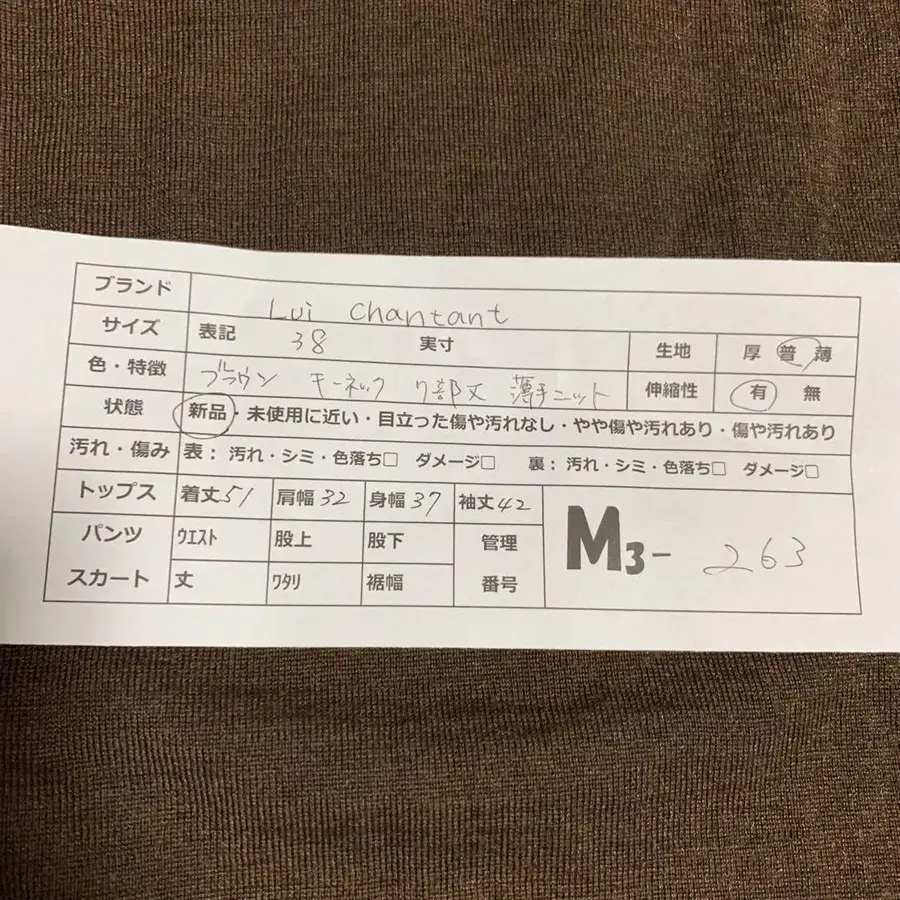 ブランド Lui Chantant
サイズ 表記 38 実寸 生地 厚 普 薄
色・特徴 ブラウン キーネック 7部丈 薄手ニット 伸縮性 有 無
状態 新品・未使用に近い・目立った傷や汚れなし・やや傷や汚れあり・傷や汚れあり
汚れ・傷み 表：汚れ・シミ・色落ち□ ダメージ□ 裏：汚れ・シミ・色落ち□ ダメージ□
トップス 着丈51 肩幅32 身幅37 袖丈42
パンツ ウエスト 股上 股下 管理 M3- 263
スカート 丈 ワタリ 裾幅 番号